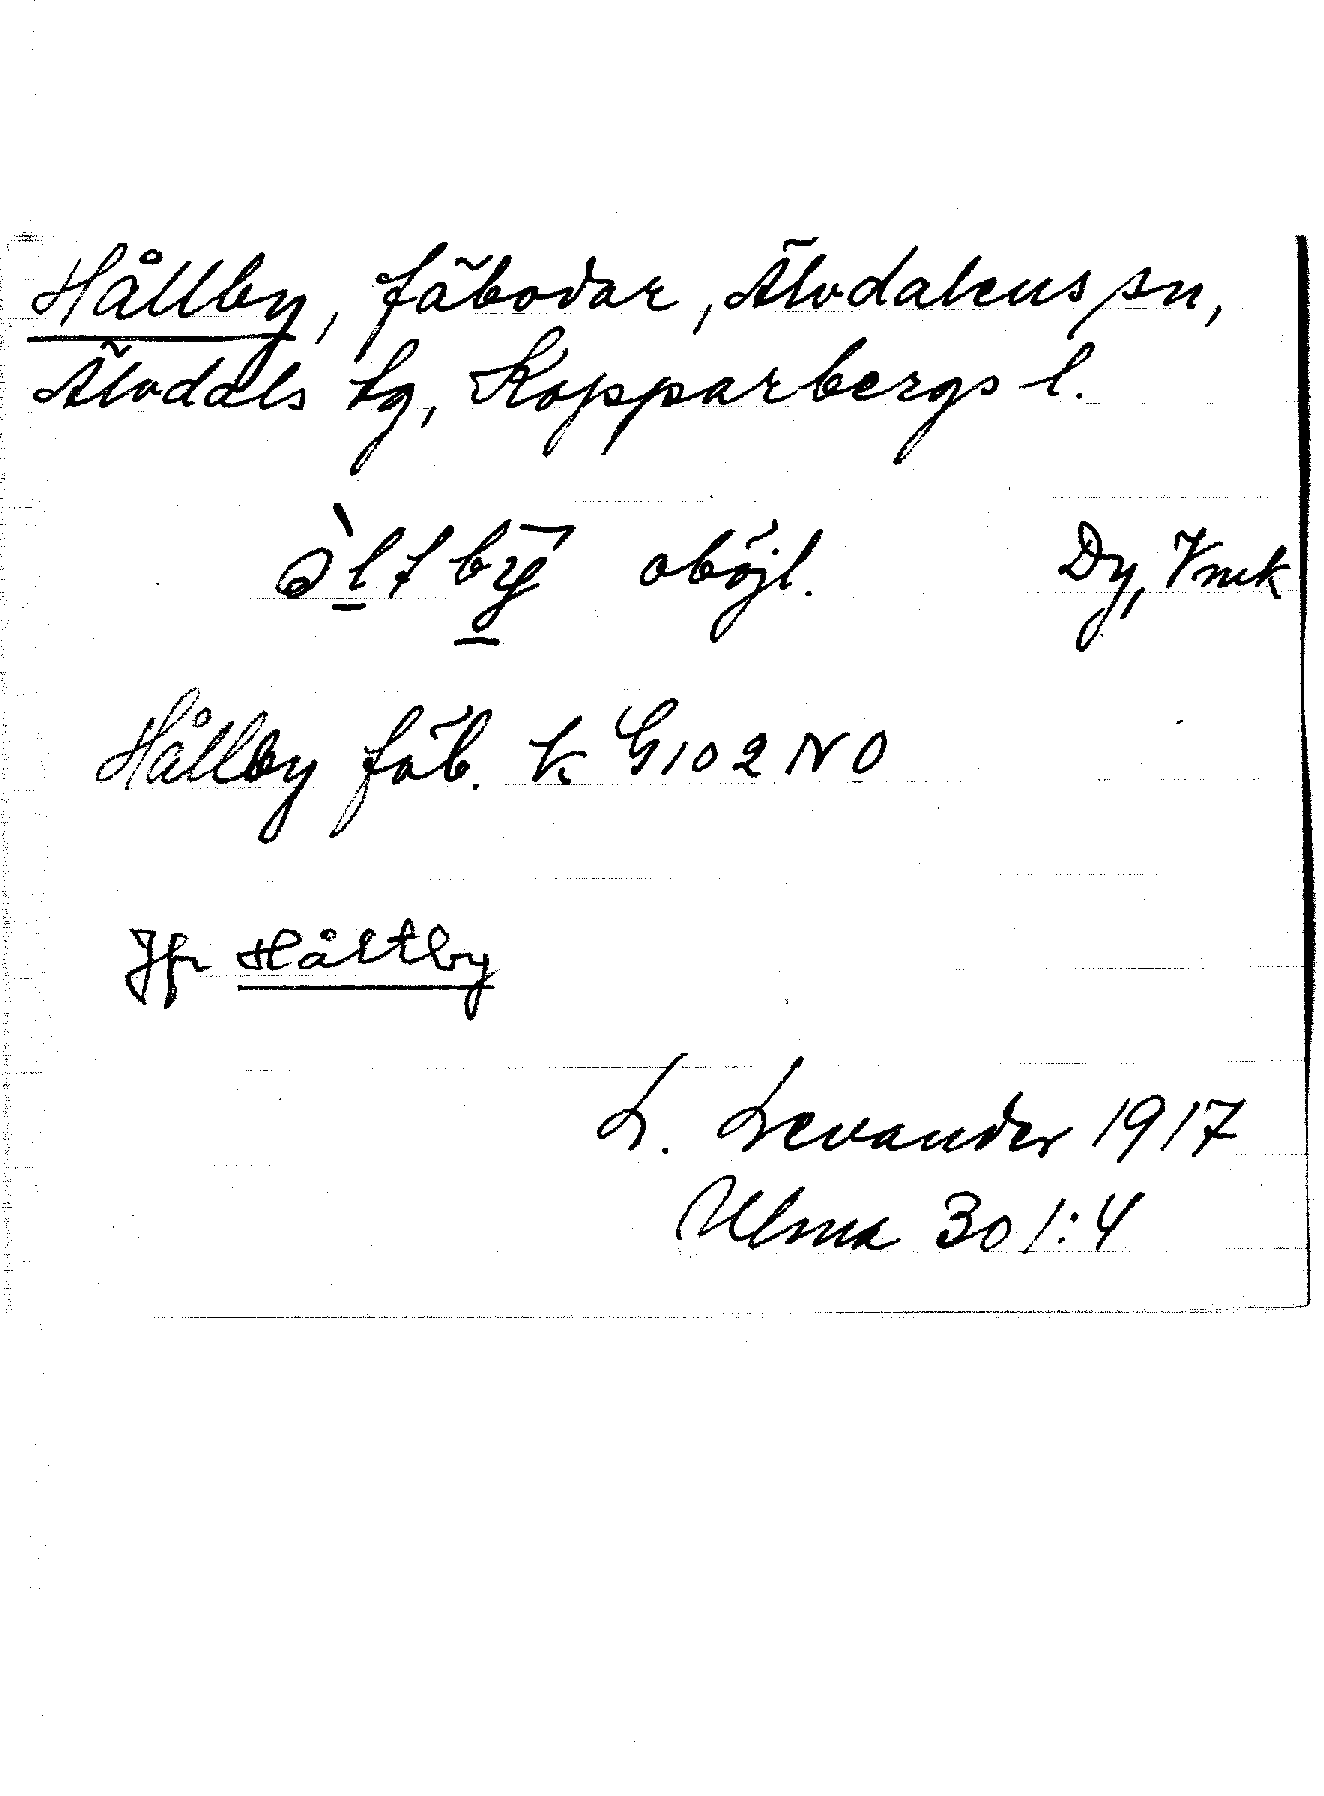 Hållby, fäbodar, Älvdalens sn,
Älvdals tg, Kopparbergs l.
oböjl. Dy, Vmk
Hållby fäb. k G102 NO
Jfr Håltby
L. Levander 1917
Ulma 301:4